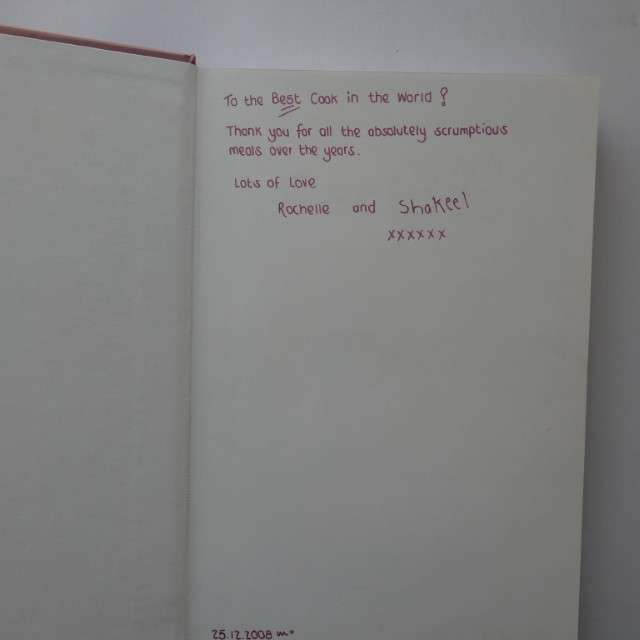 To the Best Cook in the World !
Thank you for all the absolutely scrumptious
meals over the years.
Lots of Love
Rochelle and Shakeel
xxxxxx
25.12.2008